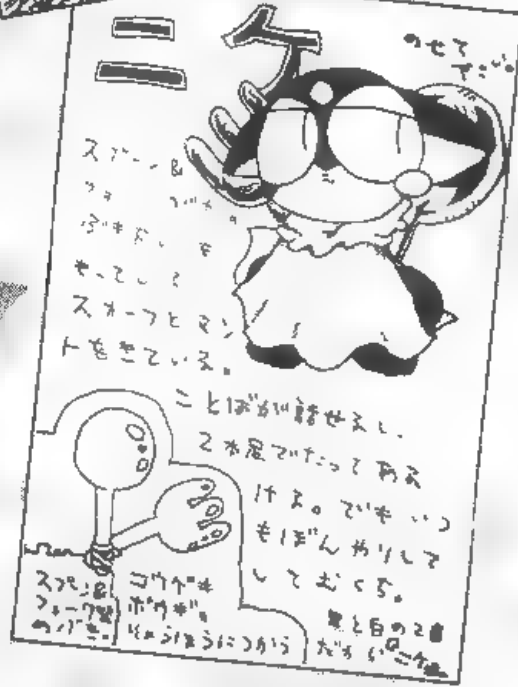 ニケ
のせて
スプーン&
もっていて
スカーフとマン
トをきている。
ことばが話せるし、
2本足でたってある
ける。でもいつ
もぼんやりして
してむくち。
スプーン&
フォーク型
のぶき。
コウゲキ
ボウギョ。
りょうほうにつかう
黒と白の2色
だからニケ